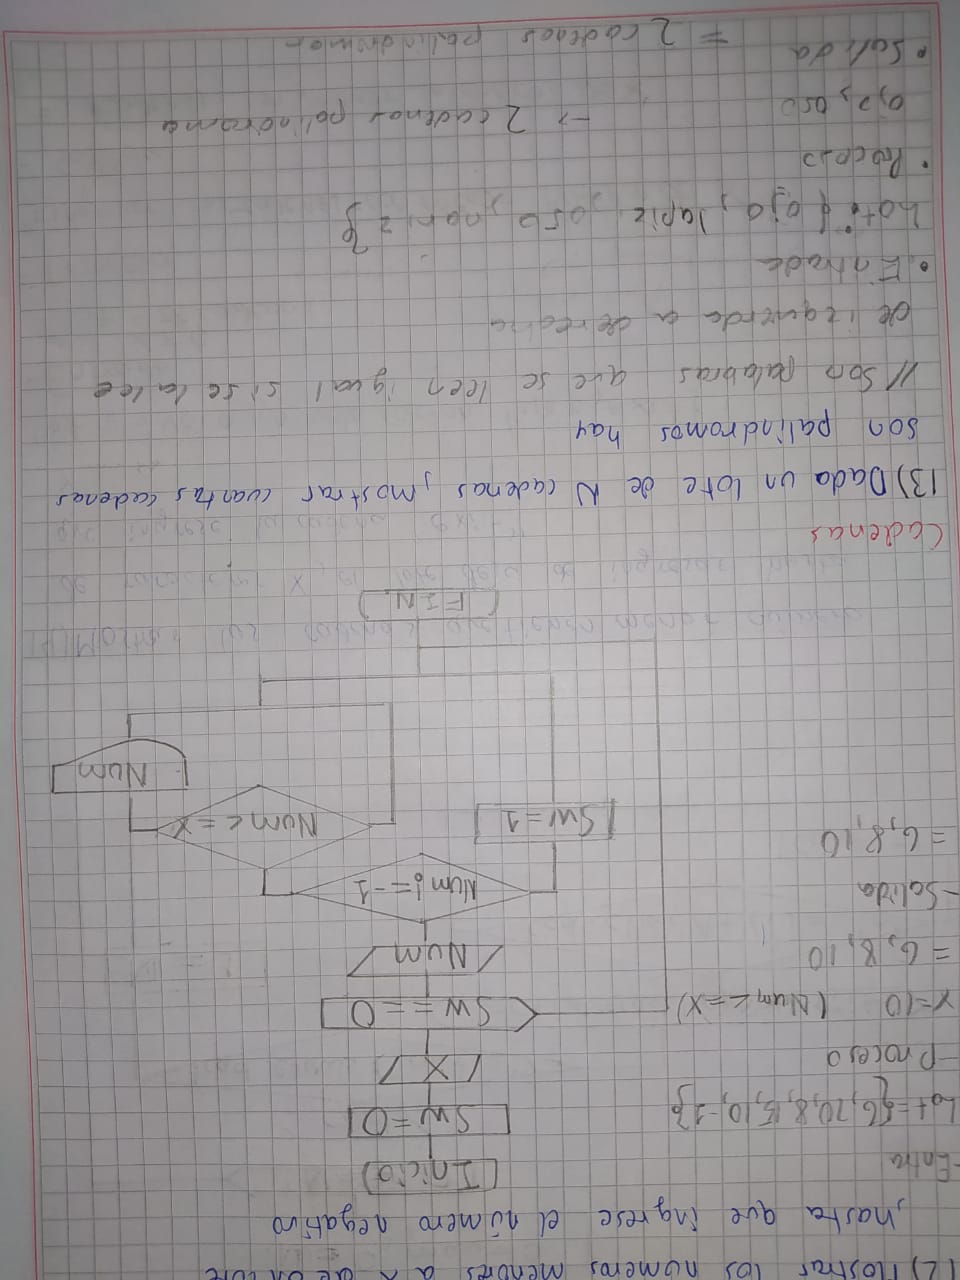 12) Mostrar los numeros menores a x de un lote
, hasta que ingrese el número negativo
- Entra
Lot = {6, 20, 8, 15, 10, -1}
- Proceso
x=10 (Num <= x)
= 6, 8, 10
- Salida
= 6, 8, 10
Inicio
SW = 0
X
SW == 0
Num
Num ¡= -1
SW = 1
Num <= x
Num
FIN
Cadenas
13) Dada un lote de N cadenas, mostrar cuantas cadenas
son palindromos hay
// Son palabras que se leen igual si se la lee
de izquerda a derecha
• Entrada
Lote { ojo, lapiz, oso, non = }
• Proceso
ojo, oso → 2 cadenas palindroma
• Salida = 2 cadenas palindromas